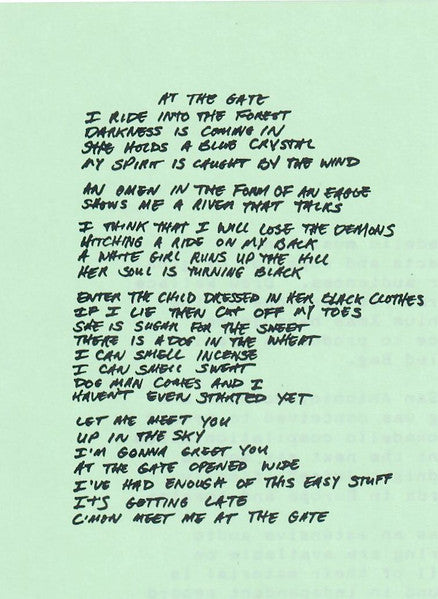 AT THE GATE
I RIDE INTO THE FOREST
DARKNESS IS COMING IN
SHE HOLDS A BLUE CRYSTAL
MY SPIRIT IS CAUGHT BY THE WIND
AN OMEN IN THE FORM OF AN EAGLE
SHOWS ME A RIVER THAT TALKS
I THINK THAT I WILL LOSE THE DEMONS
HITCHING A RIDE ON MY BACK
A WHITE GIRL RUNS UP THE HILL
HER SOUL IS TURNING BLACK
ENTER THE CHILD DRESSED IN HER BLACK CLOTHES
IF I LIE THEN CUT OFF MY TOES
SHE IS SUGAR FOR THE SWEET
THERE IS A DOG IN THE WHEAT
I CAN SMELL INCENSE
I CAN SMELL SWEAT
DOG MAN COMES AND I
HAVEN'T EVEN STARTED YET
LET ME MEET YOU
UP IN THE SKY
I'M GONNA GREET YOU
AT THE GATE OPENED WIDE
I'VE HAD ENOUGH OF THIS EASY STUFF
IT'S GETTING LATE
C'MON MEET ME AT THE GATE